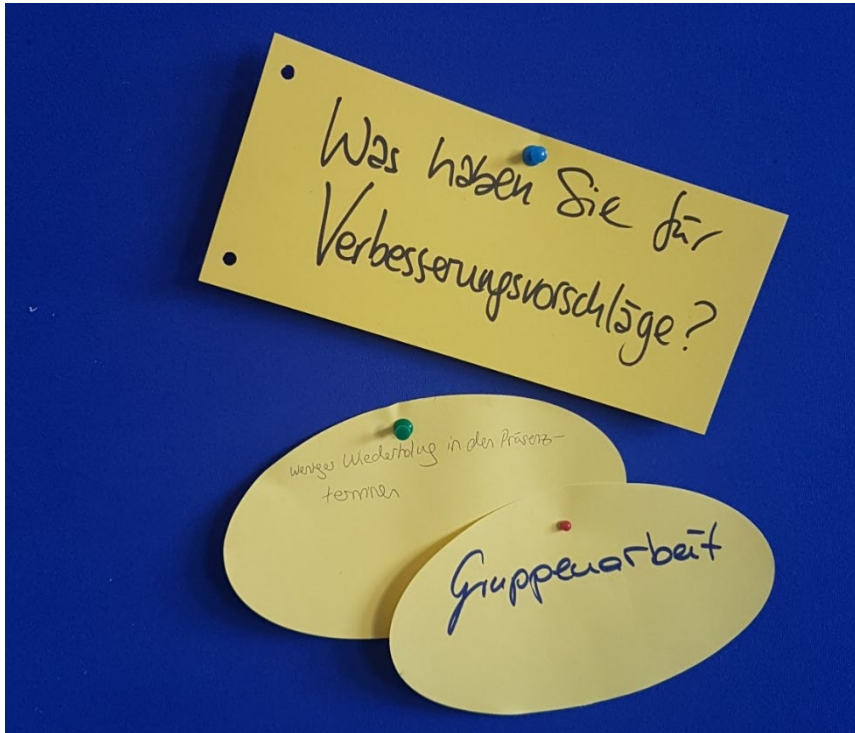 Was haben Sie für
Verbesserungsvorschläge?
weniger Wiederholung in den Präsenz-
terminen
Gruppenarbeit